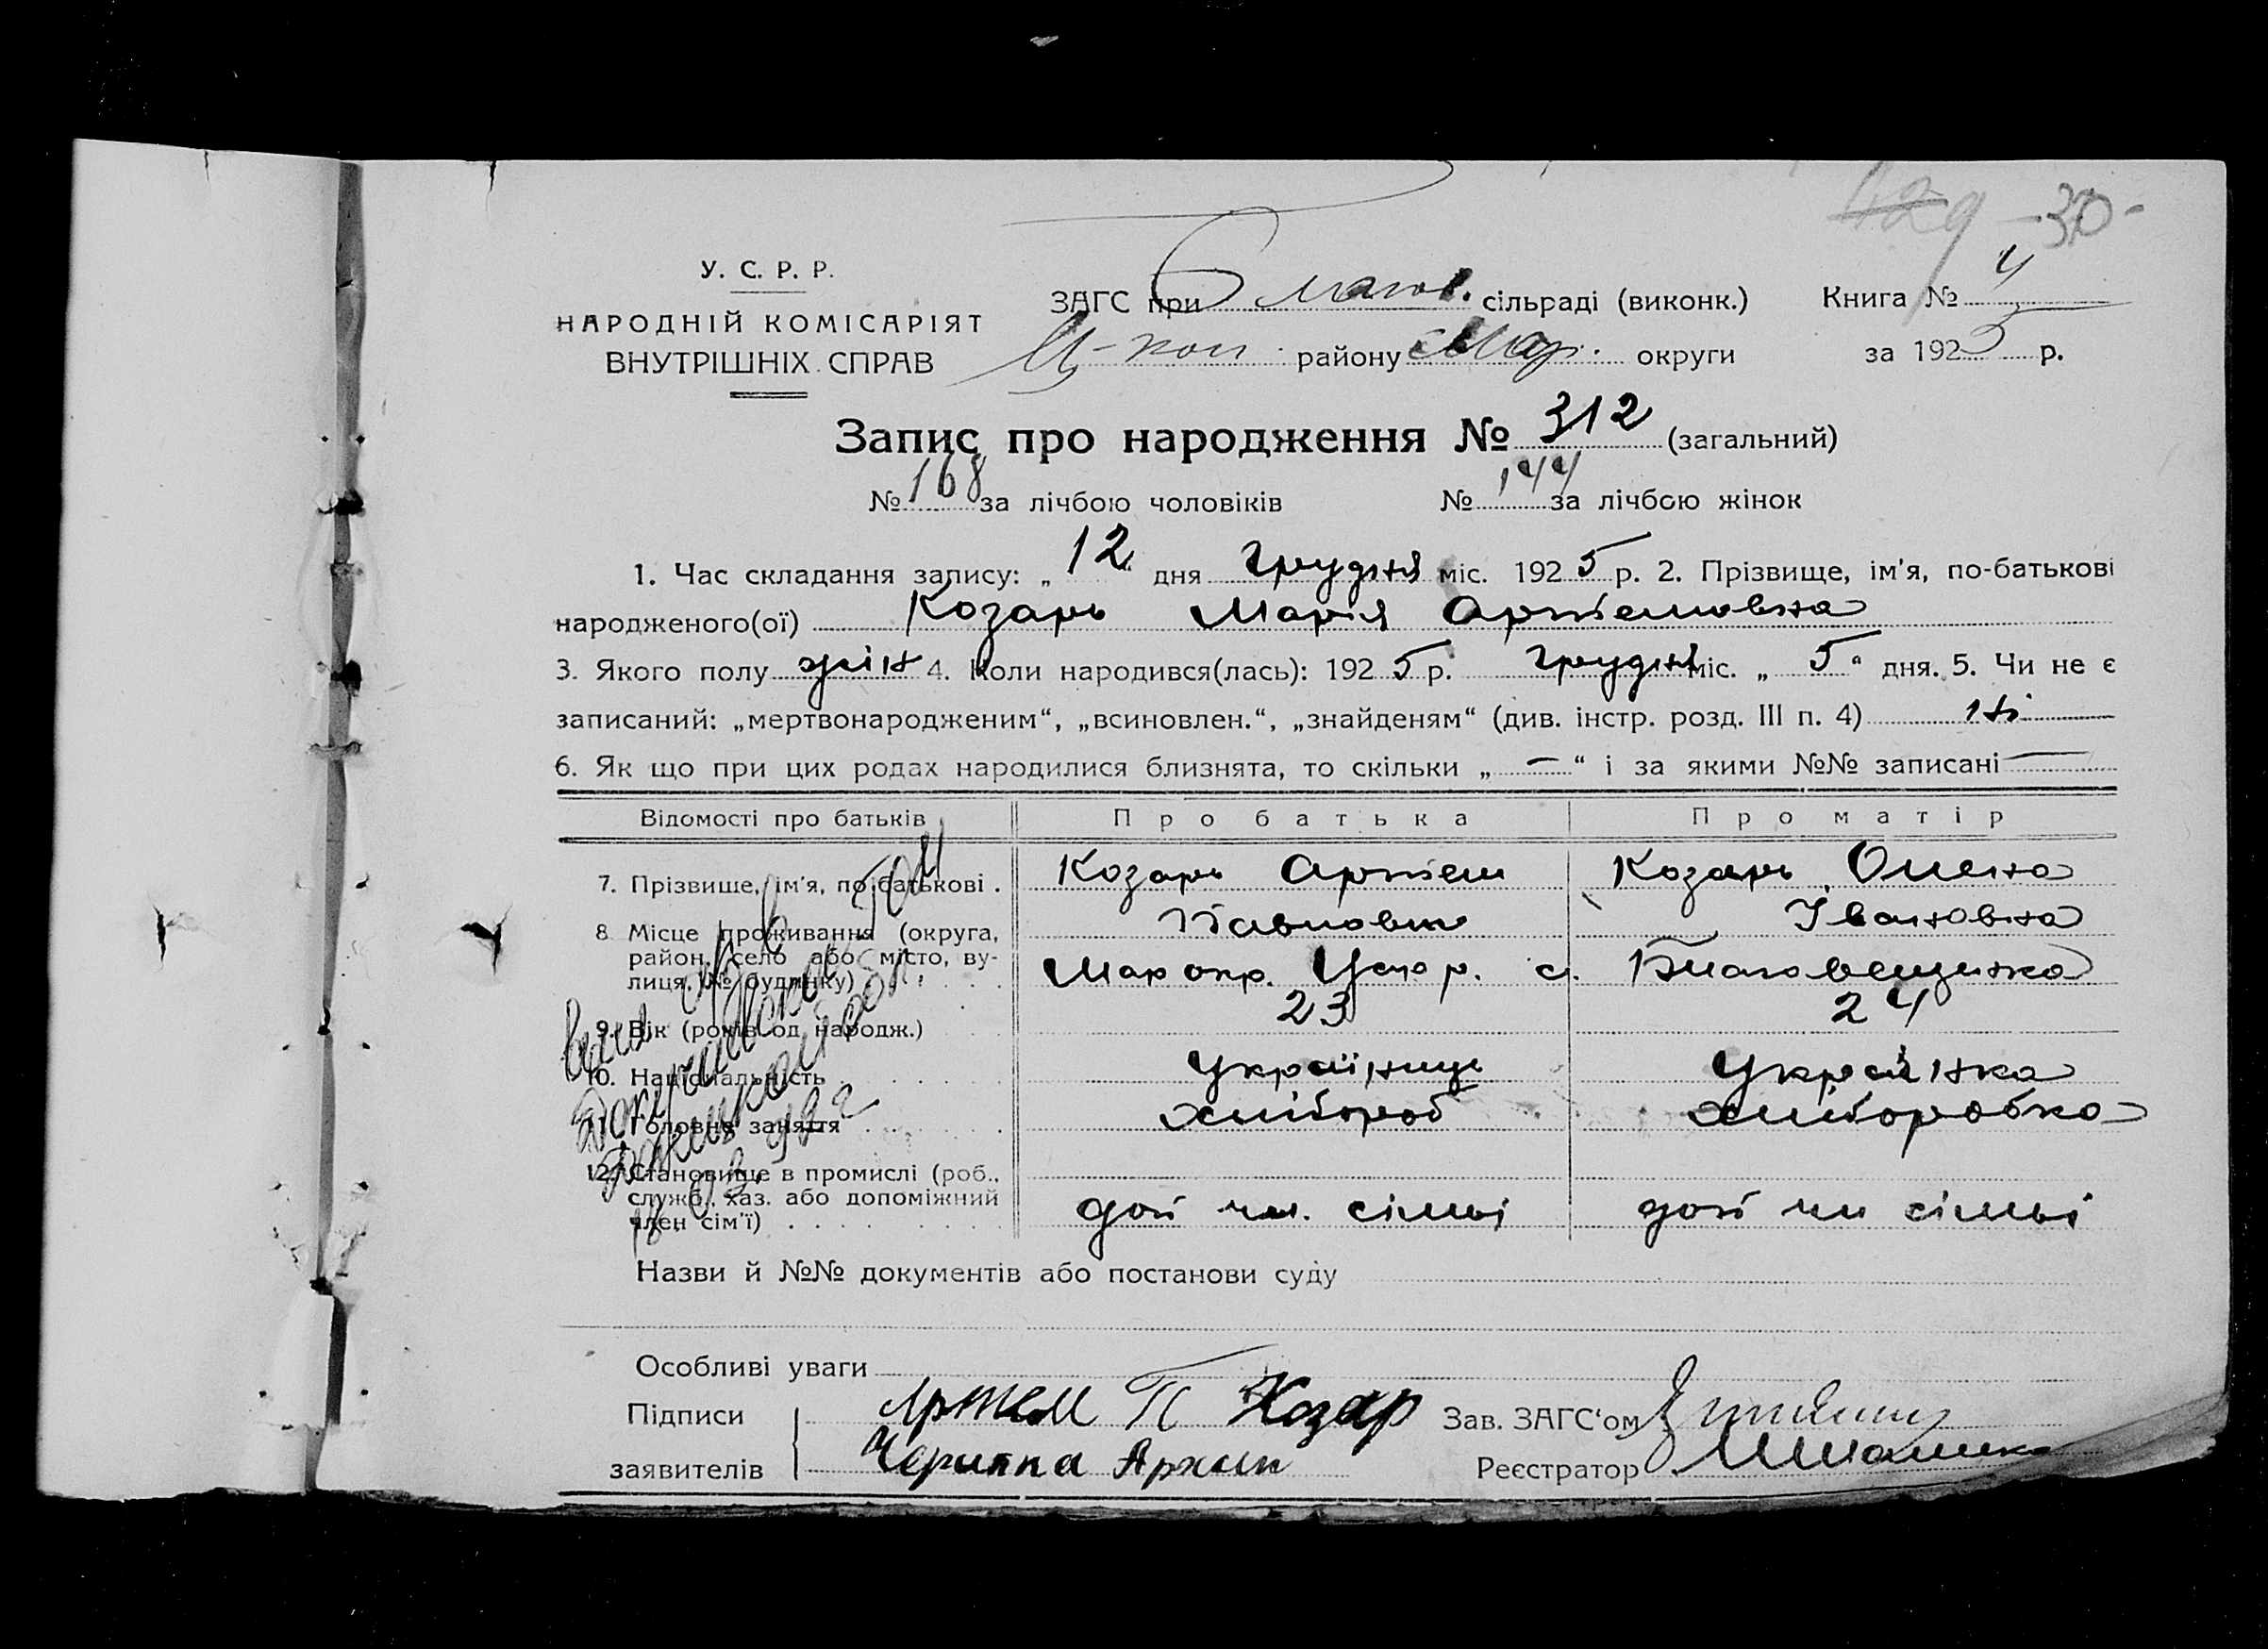 429 -30-
У. С. Р. Р.
НАРОДНІЙ КОМІСАРІЯТ
ВНУТРІШНІХ СПРАВ
ЗАГС при Благов. сільраді (виконк.) Книга № 4
району Мар. округи за 1925 р.
Запис про народження № 312 (загальний)
№ 168 за лічбою чоловіків № 144 за лічбою жінок
1. Час складання запису: „12“ дня грудня міс. 1925 р. 2. Прізвище, ім'я, по-батькові
народженого(ої) Козарь Марія Артемовна
3. Якого полу жін 4. Коли народився(лась): 1925 р. грудня міс. „5“ дня. 5. Чи не є
записаний: „мертвонародженим“, „всиновлен.“, „знайденям“ (див. інстр. розд. III п. 4) ні
6. Як що при цих родах народилися близнята, то скільки „—“ і за якими №№ записані —
Відомості про батьків Про батька Про матір
7. Прізвище, ім'я, по батькові . Козарь Артем Козарь Олена
Павлович Івановна
8 Місце проживання (округа,
район, село або місто, ву-
лиця, № будинку) Мар окр. с. Благовещенка
9. Вік (років од народж.) 23 24
10. Національність Українць Українка
11. Головне заняття хлібороб хліборобка
12. Становище в промислі (роб.,
служб., хаз. або допоміжний
член сім'ї) доп чл. сімьі доп чл сімьі
Назви й №№ документів або постанови суду
Особливі уваги
Підписи Артем П Козар Зав. ЗАГС'ом
заявителів Реєстратор